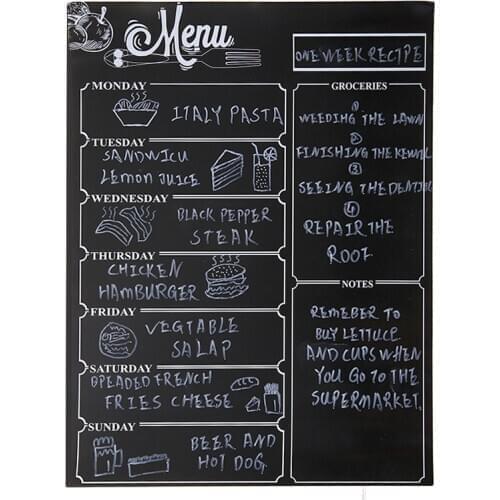 Menu
ONE WEEK RECIPE
MONDAY
ITALY PASTA
TUESDAY
SANDWICU
LEMON JUICE
WEDNESDAY
BLACK PEPPER
STEAK
THURSDAY
CHICKEN
HAMBURGER
FRIDAY
VEGTABLE
SALAP
SATURDAY
OPEADED FRENCH
FRIES CHEESE
SUNDAY
BEER AND
HOT DOG
GROCERIES
①
WEEDING THE LAWN
②
FINISHING THE
③
SEEING THE
④
REPAIR THE
ROOZ
NOTES
REMEBER TO
BUY LETTUCE
AND CUPS WHEN
YOU GO TO THE
SUPERMARKET.